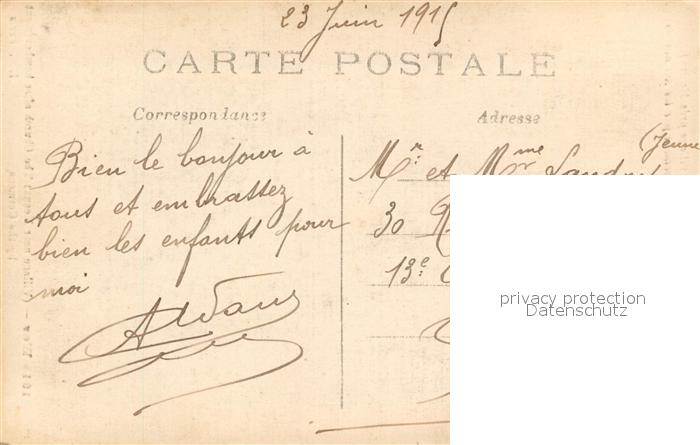 23 Juin 1915
CARTE POSTALE
Correspondance
Adresse
Bien le bonjour à
tous et embrassez
bien les enfants pour
moi
(Jeune
Mr. et Mme
30 R
13e
privacy protection
Datenschutz